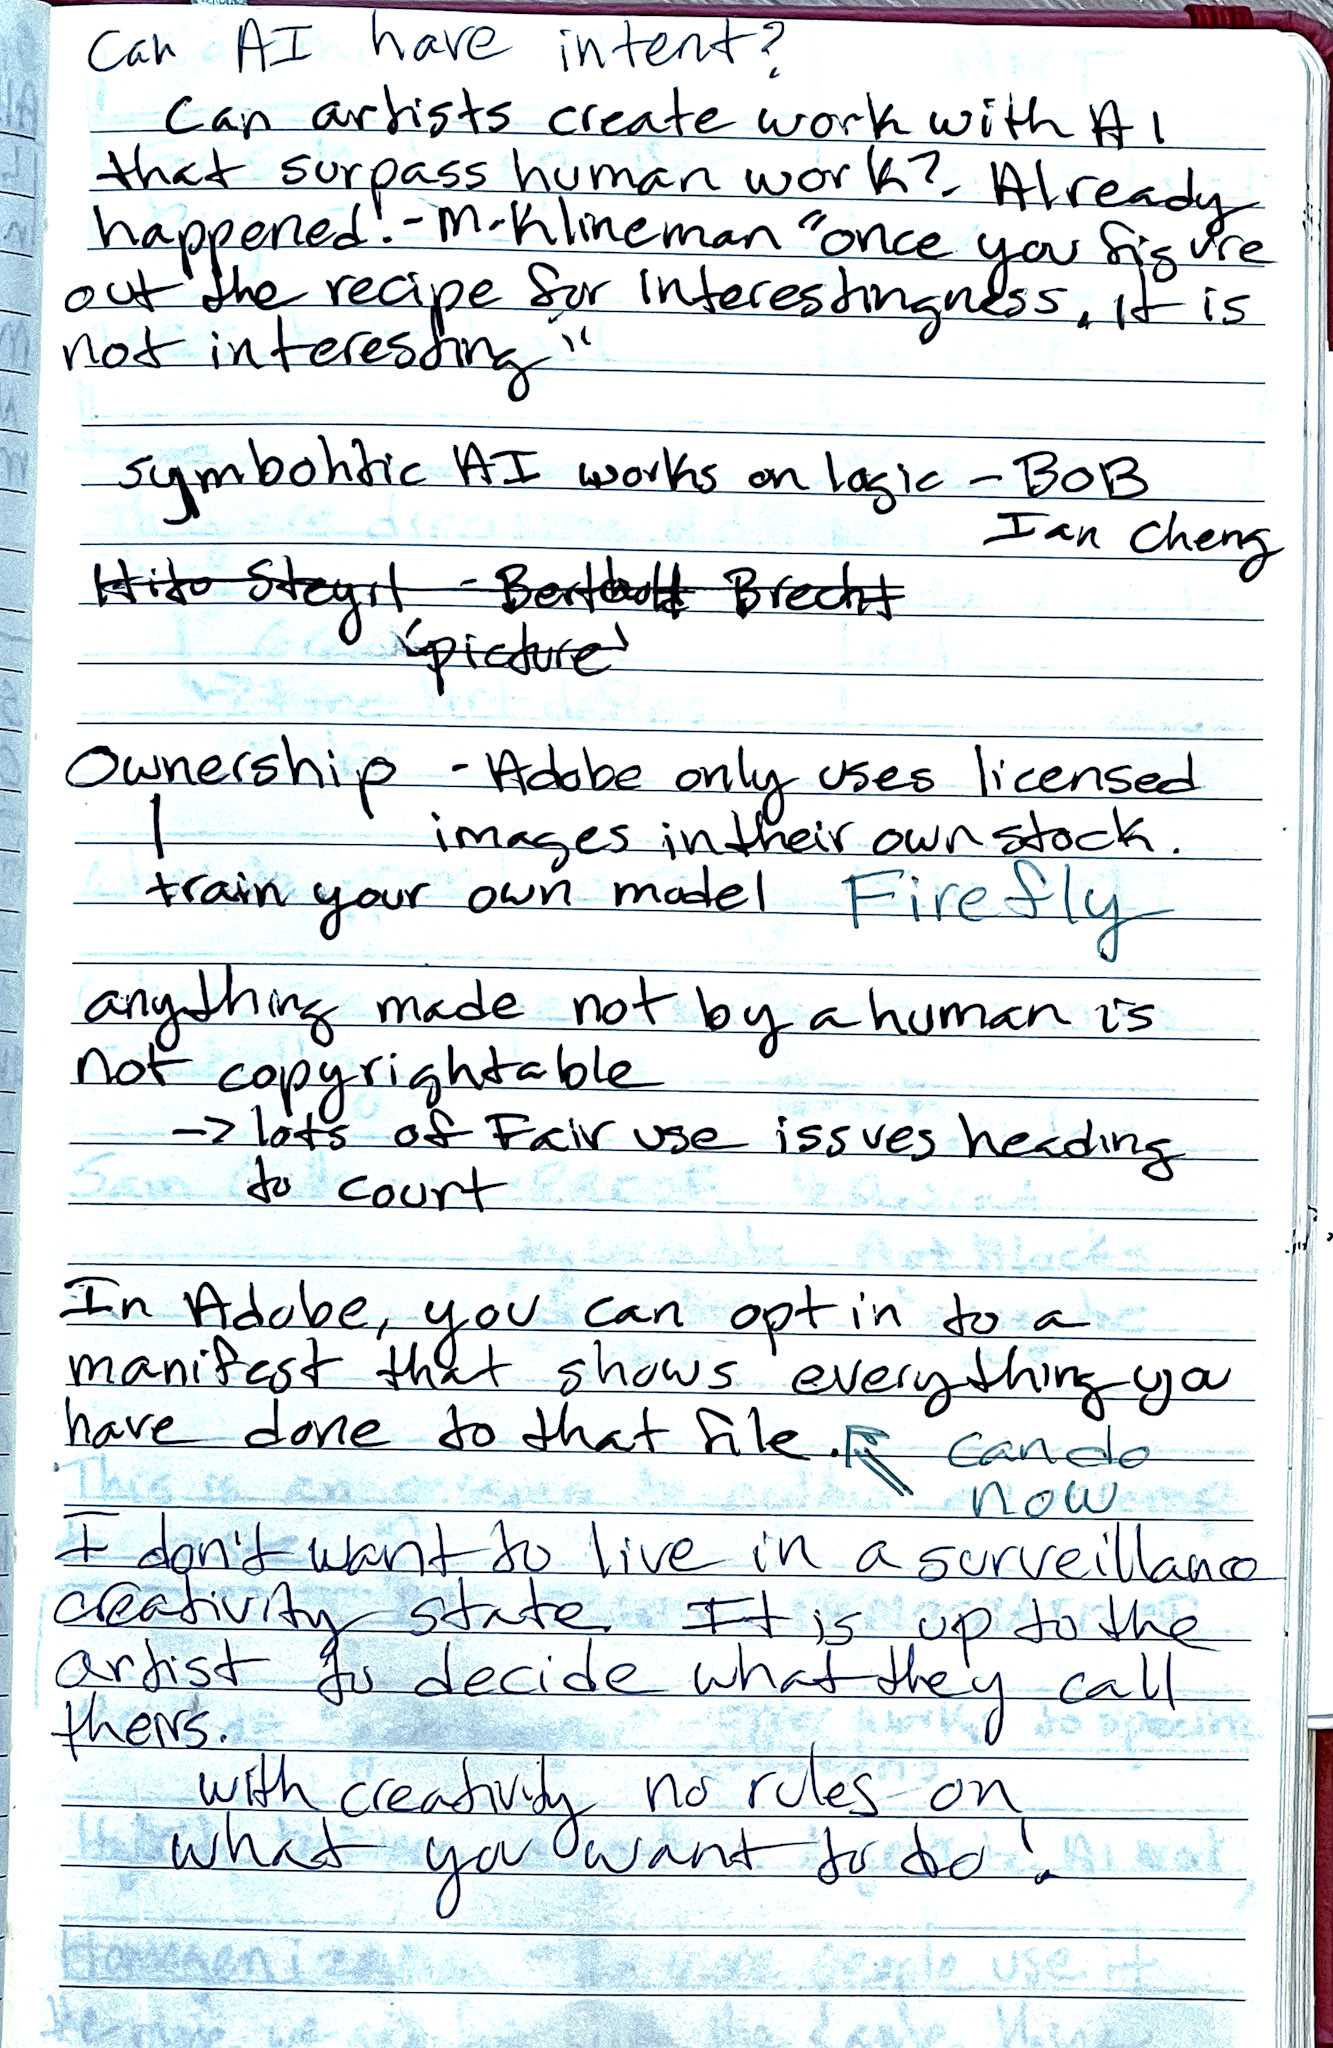 Can AI have intent?
Can artists create work with AI
that surpass human work?. Already
happened! - M. Klineman "once you figure
out the recipe for interestingness, it is
not interesting"
symbohtic AI works on logic - BOB
Ian Cheng
Hito Steyrl - Bertholt Brecht
'picture'
Ownership - Adobe only uses licensed
images in their own stock.
train your own model Firefly
anything made not by a human is
not copyrightable
-> lots of Fair use issues heading
to court
In Adobe, you can opt in to a
manifest that shows everything you
have done to that file. can do
now
I don't want to live in a surveillance
creativity state. It is up to the
artist to decide what they call
theirs.
with creativity no rules on
what you want to do!